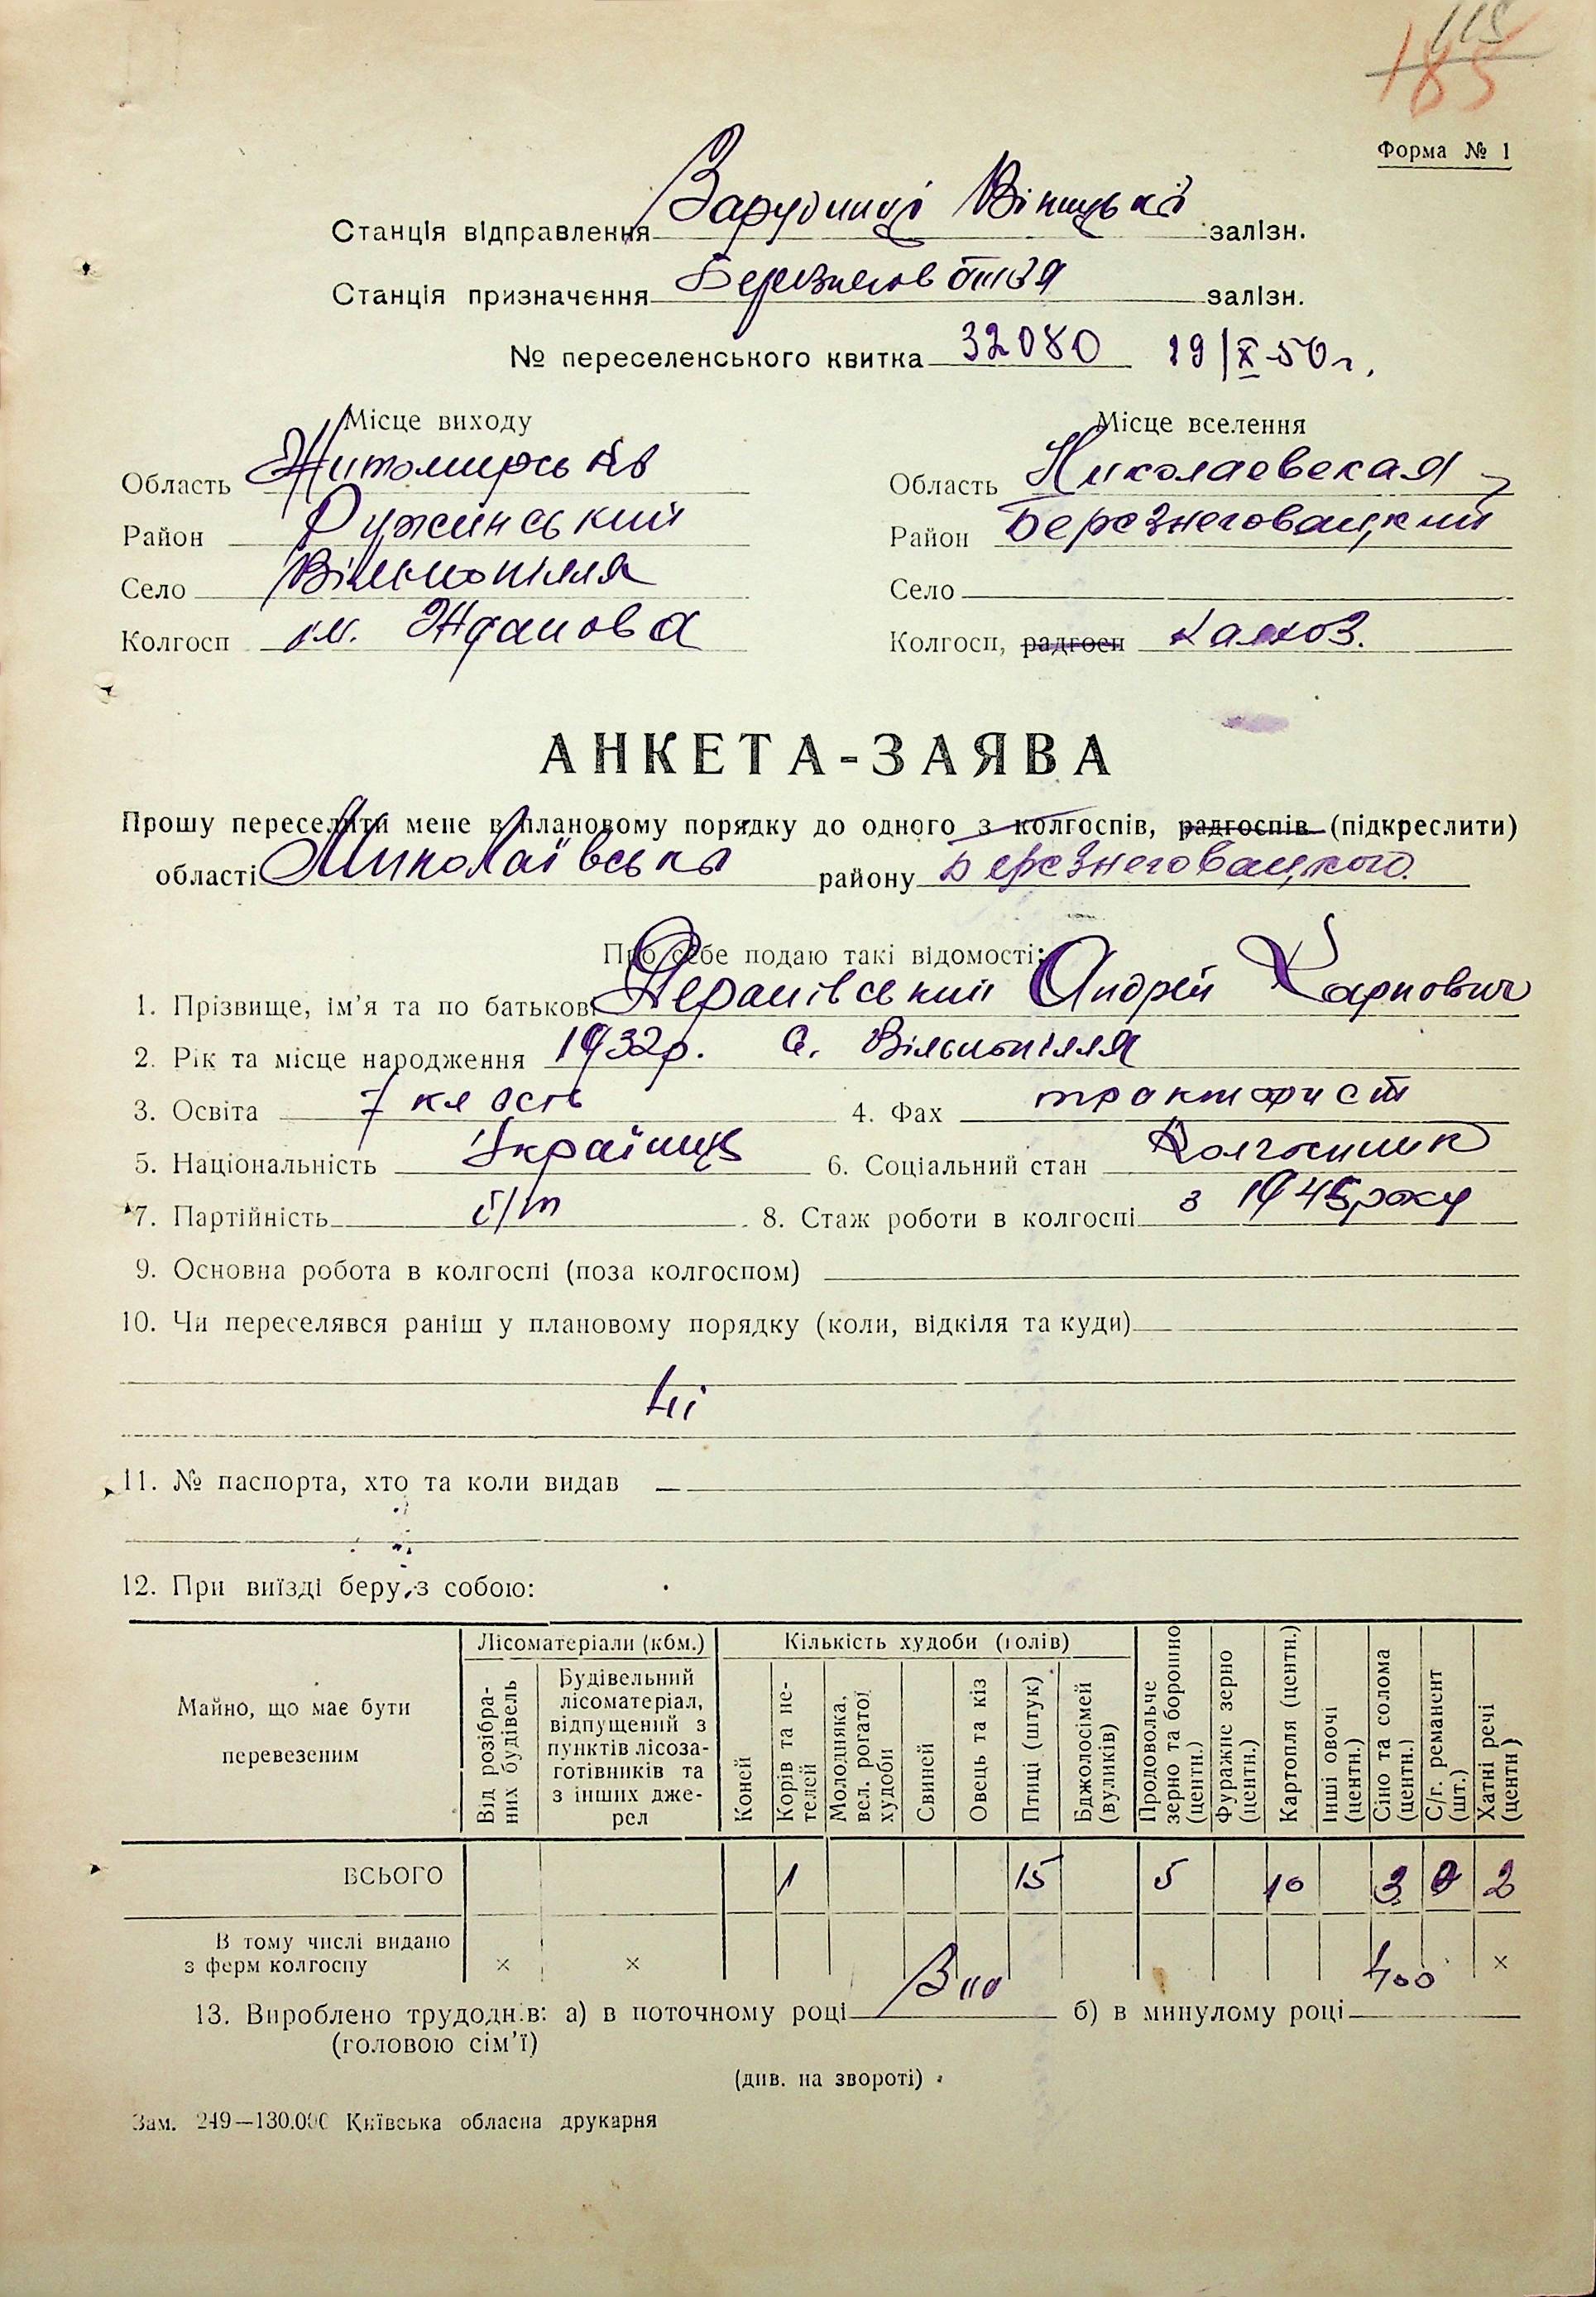 115
185
Форма № 1
Станція відправлення Зарудинці Вінницької залізн.
Станція призначення залізн.
№ переселенського квитка 32080 19/X-50 г.
Місце виходу
Область Житомирська
Район Ружинський
Село Вільнопілля
Колгосп ім. Жданова
Місце вселення
Область Николаевская
Район Березнеговацкий
Село
Колгосп, радгосп колхоз.
АНКЕТА-ЗАЯВА
Прошу переселити мене в плановому порядку до одного з колгоспів, радгоспів (підкреслити)
області Миколаївська району Березнеговацкого
Про себе подаю такі відомості:
1. Прізвище, ім'я та по батькові Андрей Карпович
2. Рік та місце народження 1932р. с. Вільнопілля
3. Освіта 7 кл 4. Фах тракторист
5. Національність Українець 6. Соціальний стан Колгоспник
7. Партійність б/п 8. Стаж роботи в колгоспі з 1945 року
9. Основна робота в колгоспі (поза колгоспом)
10. Чи переселявся раніш у плановому порядку (коли, відкіля та куди)
Ні
11. № паспорта, хто та коли видав —
12. При виїзді беру з собою:
Майно, що має бути перевезеним
Лісоматеріали (кбм.)
Від розібраних будівель
Будівельний лісоматеріал, відпущений з пунктів лісозаготівників та з інших джерел
Кількість худоби (голів)
Коней
Корів та нетелей
Молодняка, вел. рогатої худоби
Свиней
Овець та кіз
Птиці (штук)
Бджолосімей (вуликів)
Продовольче зерно та борошно (центн.)
Фуражне зерно (центн.)
Картопля (центн.)
Інші овочі (центн.)
Сіно та солома (центн.)
С/г. реманент (шт.)
Хатні речі (центн)
ВСЬОГО 1 15 5 10 3 0 2
В тому числі видано з ферм колгоспу × × ×
13. Вироблено трудоднів: а) в поточному році 300 б) в минулому році 400
(головою сім'ї)
(див. на звороті)
Зам. 249—130.000 Київська обласна друкарня